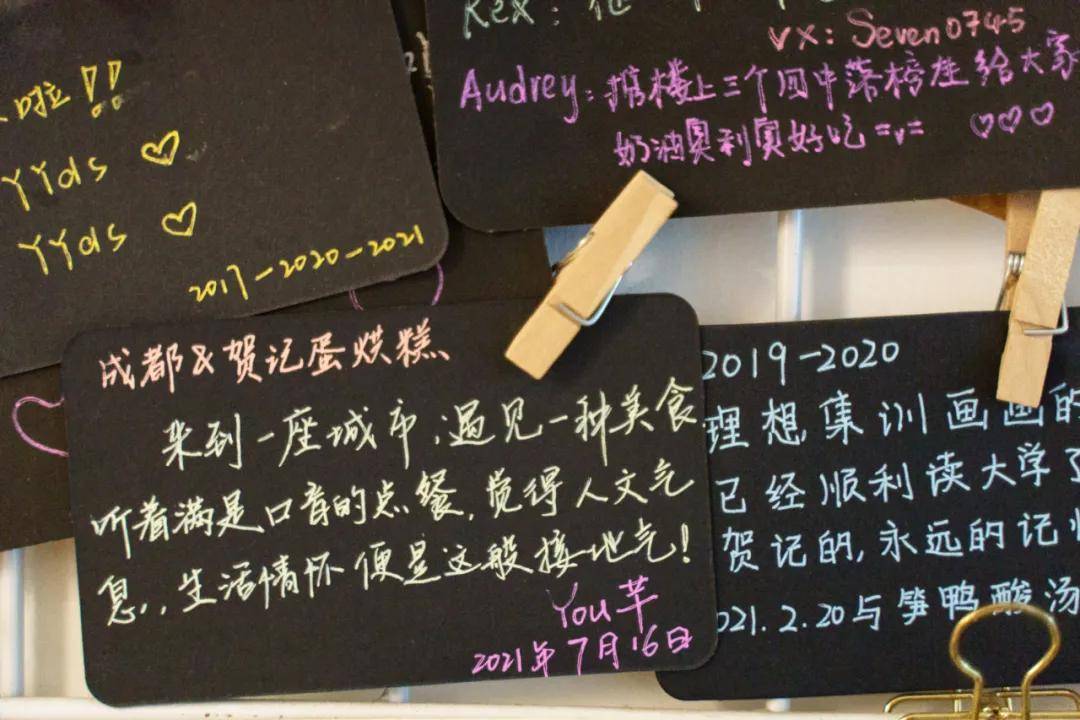 啦!!
YYds ♡
YYds ♡
2017-2020-2021
Rex: 他
vx: Seven0745
Audrey: 掂楼上三个四中落榜生给大家
奶油奥利奥好吃 =v= ♡♡♡
成都&贺记蛋烘糕
来到一座城市,遇见一种美食
听着满是口音的点餐,觉得人文气
息,,生活情怀便是这般接地气!
You芊
2021年7月16日
2019-2020
理想集训画画的
已经顺利读大学了
贺记的,永远的记忆
2021.2.20与笋鸭酸汤